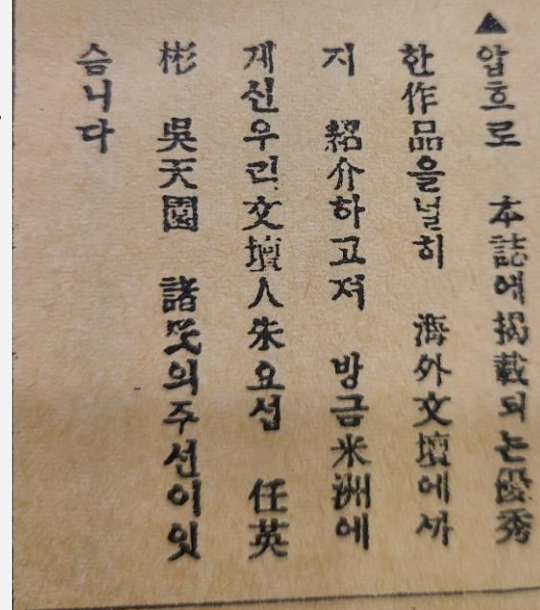 ▲압흐로 本誌에揭載되는優秀
한作品을널히 海外文壇에까
지 紹介하고저 방금米洲에
게신우리文壇人朱요섭 任英
彬 吳天園 諸氏의주선이잇
슴니다